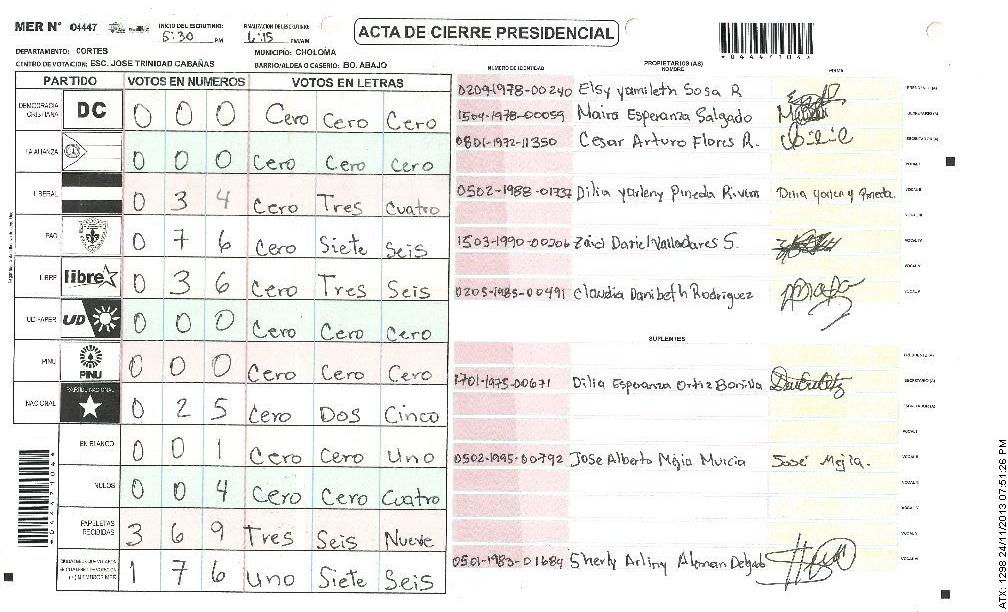 MER N° 04447
INICIO DEL ESCRUTINIO: 5:30 PM
FINALIZACION DE ESCRUTINIO: 6:15 PM/AM
ACTA DE CIERRE PRESIDENCIAL
DEPARTAMENTO: CORTES
MUNICIPIO: CHOLOMA
CENTRO DE VOTACION: ESC. JOSE TRINIDAD CABAÑAS
BARRIO/ALDEA O CASERIO: BO. ABAJO
PARTIDO VOTOS EN NUMEROS VOTOS EN LETRAS
NUMERO DE IDENTIDAD PROPIETARIOS (AS) NOMBRE FIRMA
DEMOCRACIA CRISTIANA DC 0 0 0 Cero Cero Cero
LA ALIANZA 0 0 0 Cero Cero Cero
LIBERAL 0 3 4 Cero Tres Cuatro
PAC 0 7 6 Cero Siete Seis
LIBRE libre 0 3 6 Cero Tres Seis
UD-FAPER UD 0 0 0 Cero Cero Cero
PINU PINU 0 0 0 Cero Cero Cero
NACIONAL PARTIDO NACIONAL 0 2 5 Cero Dos Cinco
EN BLANCO 0 0 1 Cero Cero Uno
NULOS 0 0 4 Cero Cero Cuatro
PAPELETAS RECIBIDAS 3 6 9 Tres Seis Nueve
1 7 6 Uno Siete Seis
0209-1978-00240 Elsy yamileth Sosa R
1504-1978-00059 Maira Esperanza Salgado
0801-1972-11350 Cesar Arturo Flores R.
0502-1988-01737 Dilia yarleny Pineda Rivera Dilia yarleny Pineda.
1503-1990-00206 Daniel Valladares S.
0205-1985-00491 Claudia Danibeth Rodriguez
SUPLENTES
1701-1975-00671 Dilia Esperanza Ortiz Bonilla
0502-1995-00792 Jose Alberto Mejia Murcia José Mejía.
0501-1983-01684 Sherly Arliny Aleman Delgado
ATX: 1298 24/11/2013 07:51:26 PM